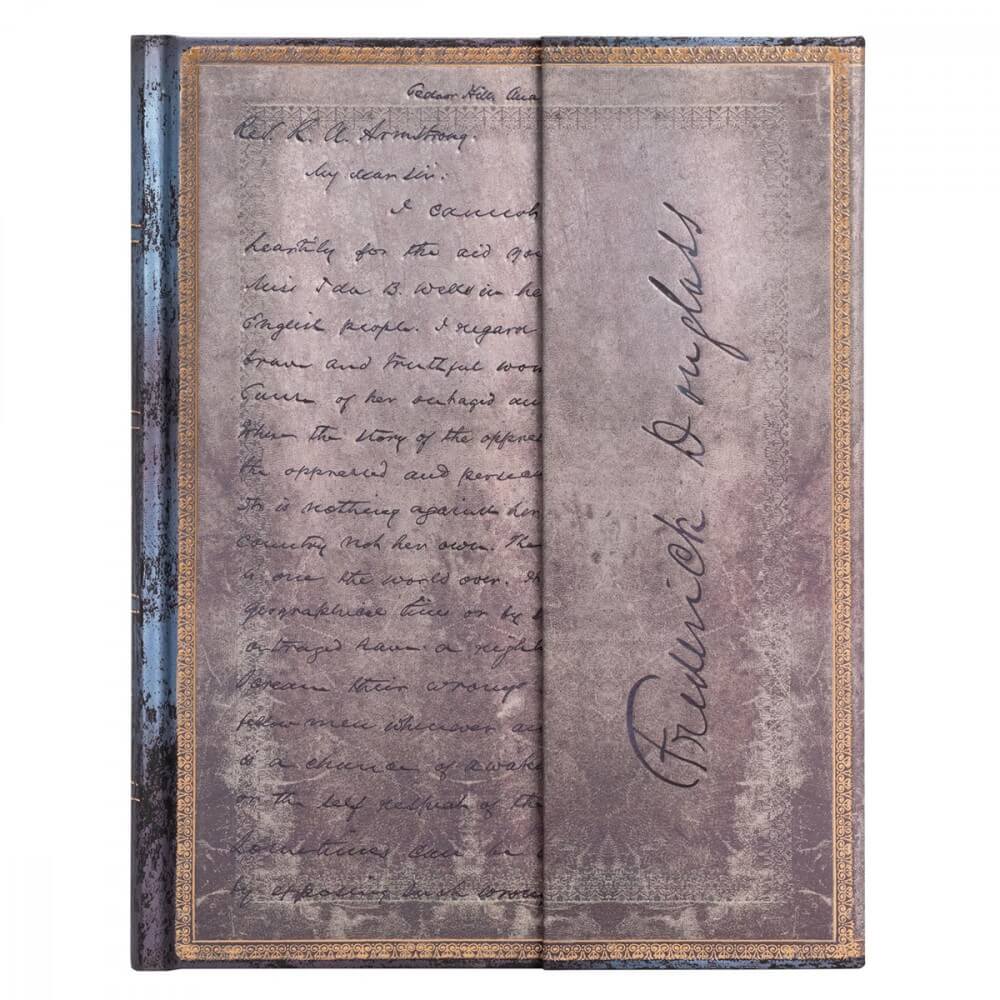 Cedar Hill, Ana
Rev. R. A. Armstrong.
My dear sir:
I cannot
heartily for the aid you
Miss Ida B. Wells in he
English people. I regard
brave and truthful wom
Cause of her outraged an
When the story of the oppres
the oppressed and persec
It is nothing against her
country not her own. The
is one the world over.
geographical lines or by
outraged have a right
scream their wrongs
fellow men wherever
is a chance of awake
or the self respect of the
Sometimes can be
by exposing such wrong
Frederick Douglass